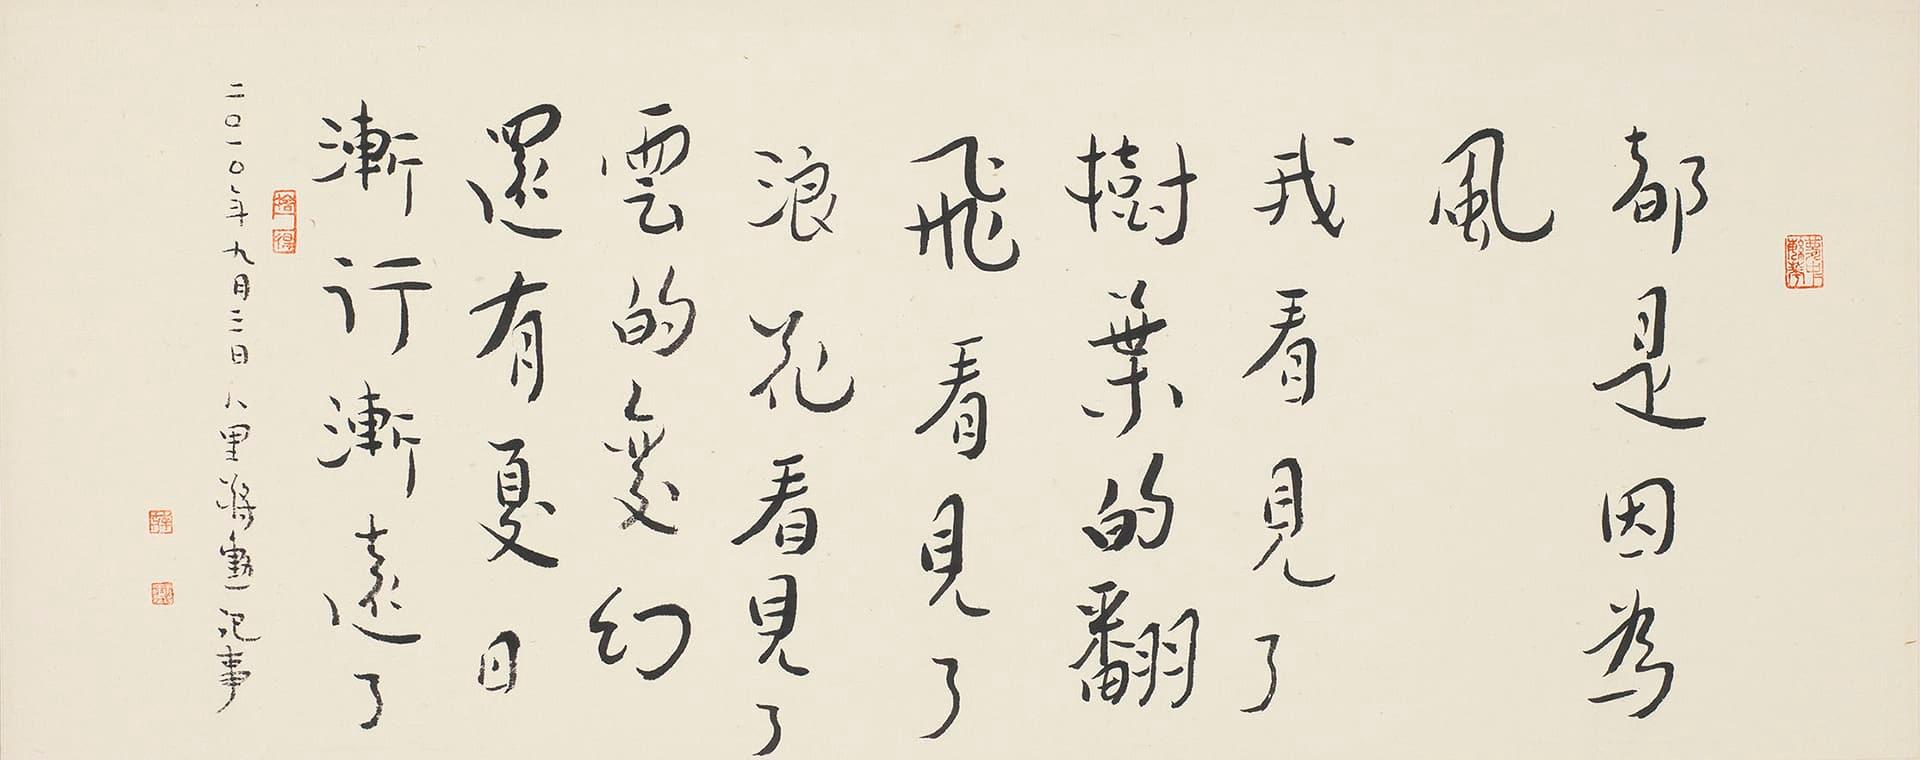 都是因為
風
我看見了
樹葉的翻
飛看見了
浪花看見了
雲的變幻
還有夏日
漸行漸遠了
二〇一〇年九月三日八里蔣勳記事
捨得